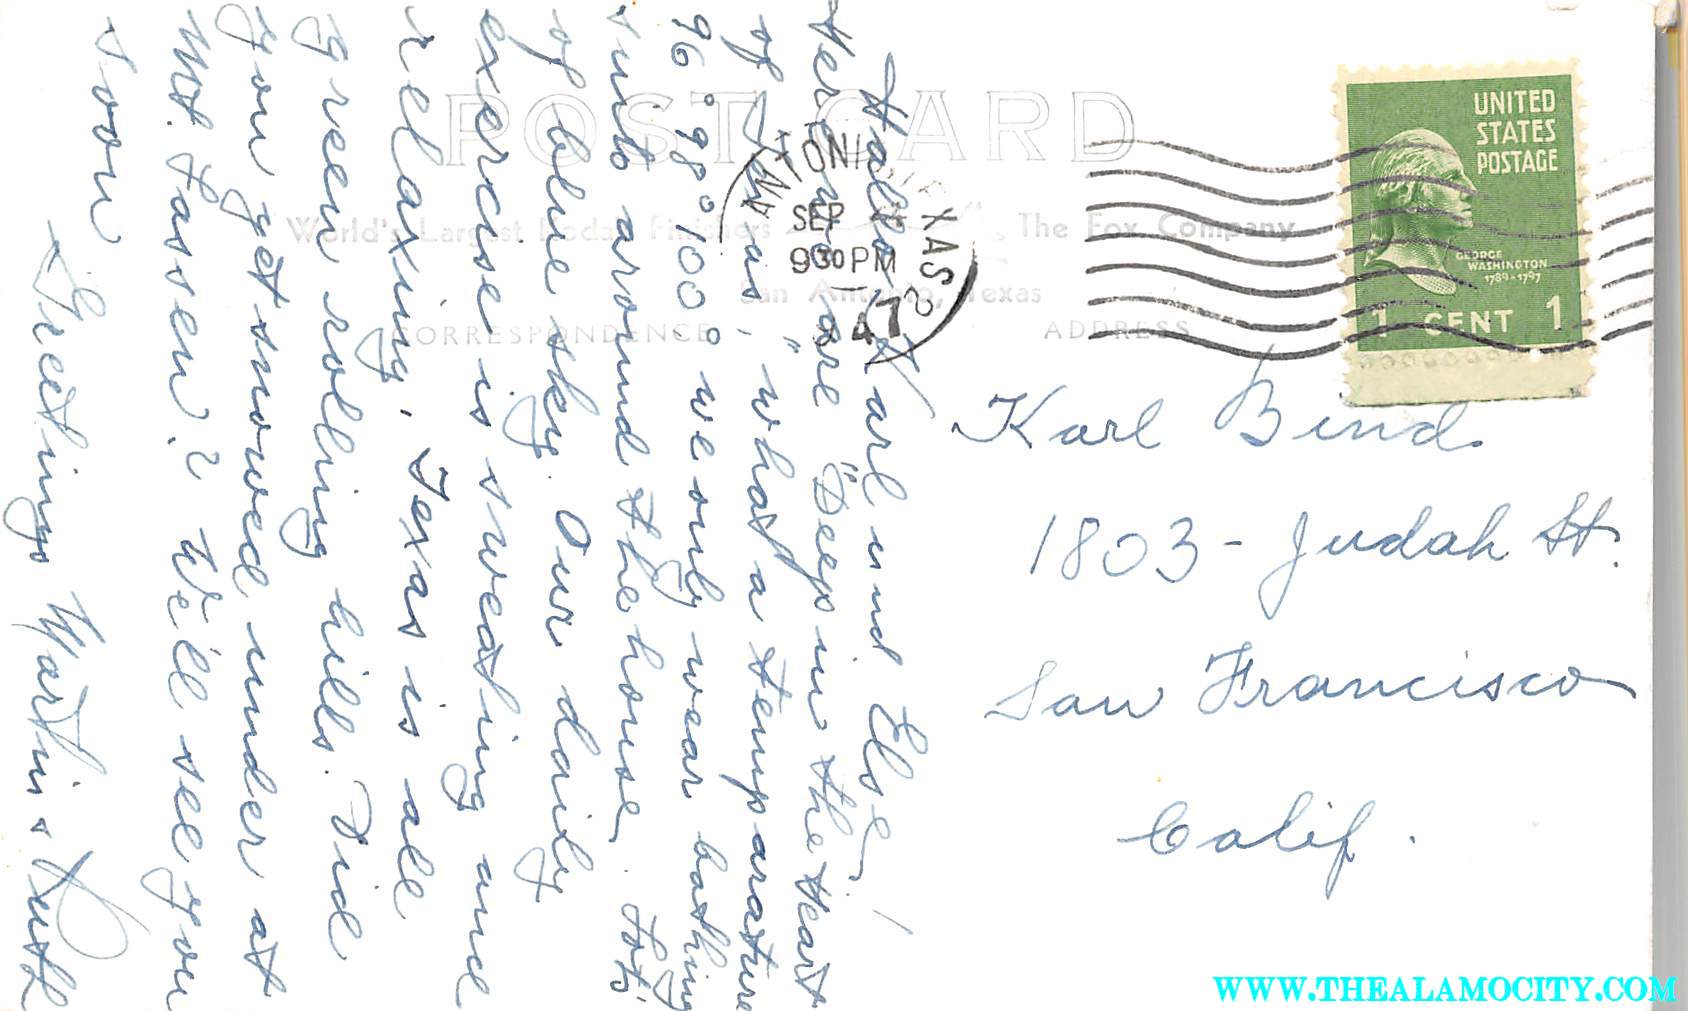 POST CARD
World's Largest Kodak Finishers The Fox Company
San Antonio, Texas
CORRESPONDENCE
ADDRESS
ANTONIO TEXAS 2
SEP 4
930 PM
1947
UNITED
STATES
POSTAGE
GEORGE
WASHINGTON
1789-1797
1 CENT 1
Hallo Karl und Else,
Here we are "Deep in the Heart
of Texas," what a temparature
96° 98° 100° we only wear bathing
suits around the house. Lots
of blue sky. Our daily
exercise is sweating and
relaxing. Texas is all
green rolling hills. Did
you get snowed under at
Mt. Lassen? We'll see you
soon
Greetings Martin & Ruth
Karl Bind.
1803 - Judah St.
San Francisco
Calif.
WWW.THEALAMOCITY.COM